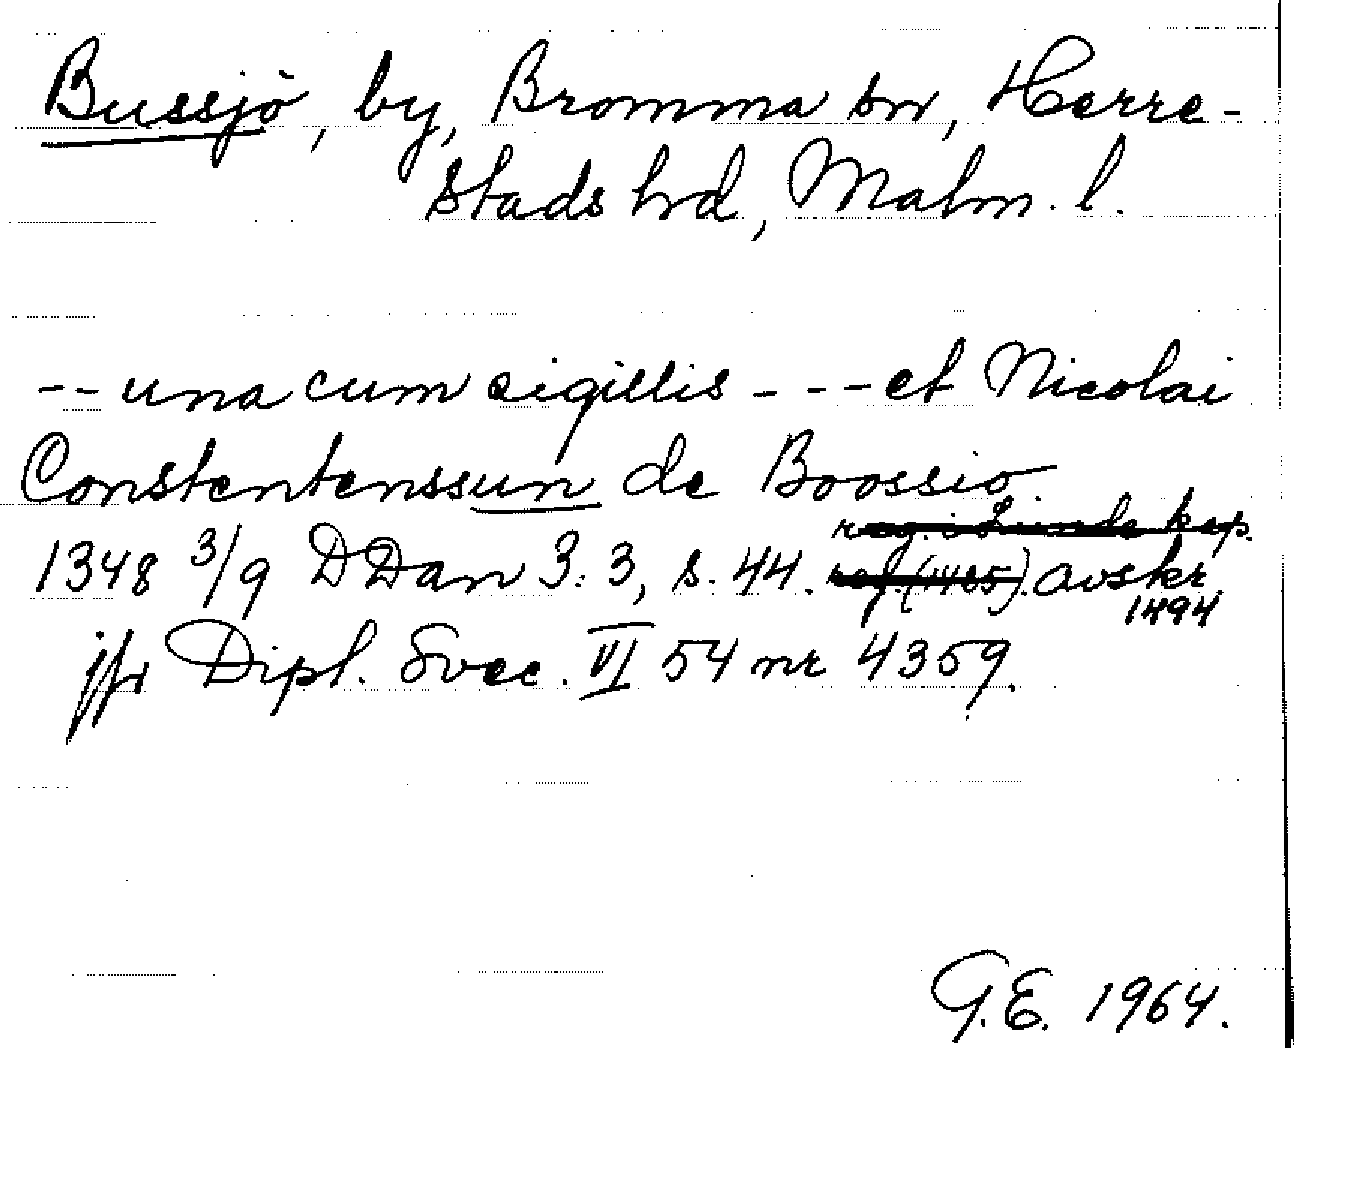 Bussjö, by, Bromma sn, Herre-
stads hrd, Malm. l.
-- una cum sigillis - - - et Nicolai
Constentenssun de Boossio.
reg. i Lunde kap.
1348 3/9 DDan 3:3, s. 44. reg. (1485). Avskr
1494
jfr Dipl. Svec. VI 54 nr 4359.
G.E. 1964.